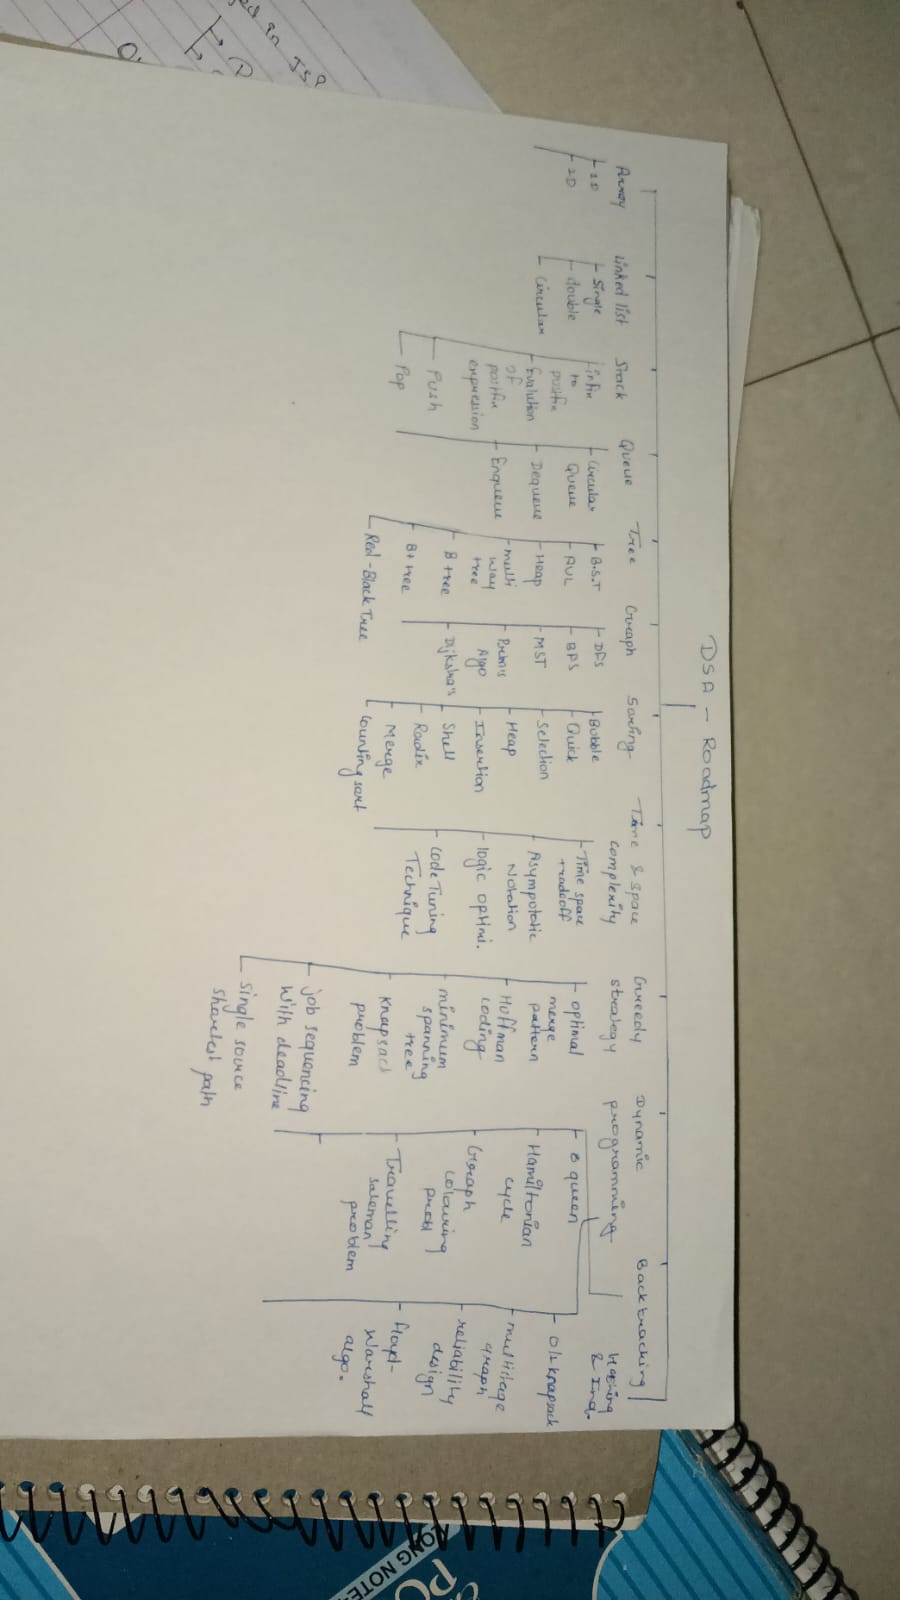 DSA - Roadmap
Array
1D
2D
Linked list
Single
double
Circular
Stack
infix
to
postfix
Evalution
of
postfix
expression
Push
Pop
Queue
Circular
Queue
Dequeue
Enqueue
Tree
B.S.T
AVL
Heap
multi
way
tree
B tree
B+ tree
Red-Black Tree
Graph
DFS
BFS
MST
Prims
Algo
Dijkstra's
Sorting
Bubble
Quick
Selection
Heap
Insertion
Shell
Radix
Merge
Counting sort
Time & space
complexity
Time space
tradeoff
Asympototic
Notation
logic optimi.
Code Tuning
Technique
Greedy
strategy
optimal
merge
pattern
Huffman
coding
minimum
spanning
tree
Knapsack
problem
job sequencing
with deadline
single source
shortest path
Dynamic
programming
Backtracking
8 queen
Hamiltonian
cycle
Graph
colouring
probl
Travelling
saleman
problem
0/1 knapsack
multistage
graph
reliability
design
floyd-
warshall
algo.
Hashing
& Ind.
in JSP
LONG NOTE